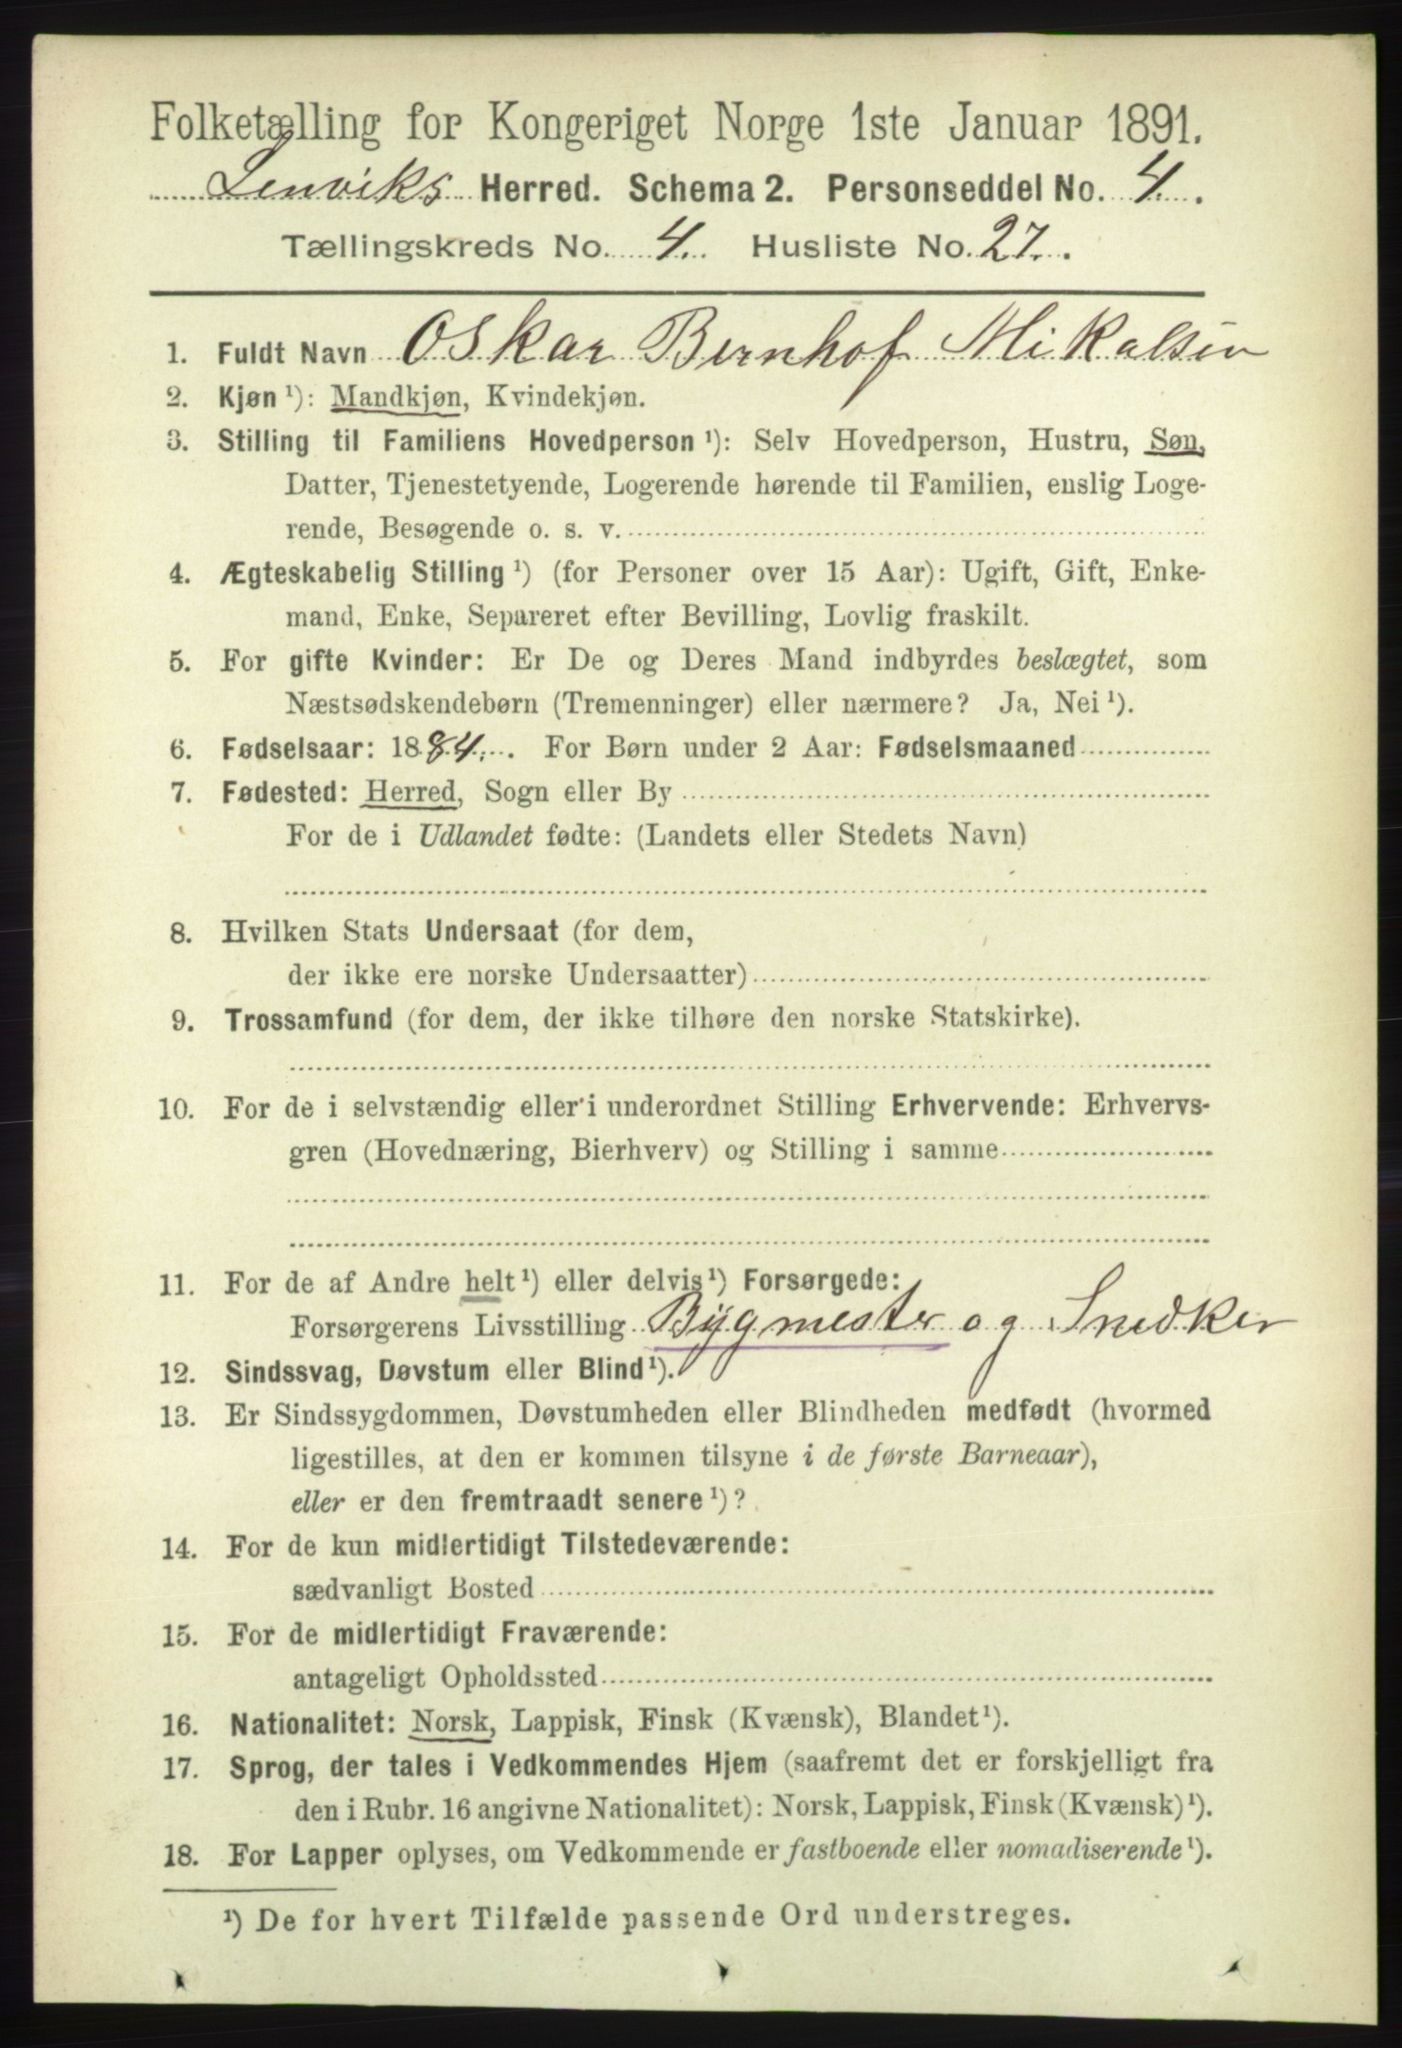 Folketælling for Kongeriget Norge 1ste Januar 1891.
Lenviks Herred. Schema 2. Personseddel No. 4.
Tællingskreds No. 4. Husliste No. 27.
1. Fuldt Navn Oskar Bernhof Mikalsen
2. Kjøn ¹): Mandkjøn, Kvindekjøn.
3. Stilling til Familiens Hovedperson ¹): Selv Hovedperson, Hustru, Søn,
Datter, Tjenestetyende, Logerende hørende til Familien, enslig Loge-
rende, Besøgende o. s. v.
4. Ægteskabelig Stilling ¹) (for Personer over 15 Aar): Ugift, Gift, Enke-
mand, Enke, Separeret efter Bevilling, Lovlig fraskilt.
5. For gifte Kvinder: Er De og Deres Mand indbyrdes beslægtet, som
Næstsødskendebørn (Tremenninger) eller nærmere? Ja, Nei ¹).
6. Fødselsaar: 1884. For Børn under 2 Aar: Fødselsmaaned
7. Fødested: Herred, Sogn eller By
For de i Udlandet fødte: (Landets eller Stedets Navn)
8. Hvilken Stats Undersaat (for dem,
der ikke ere norske Undersaatter)
9. Trossamfund (for dem, der ikke tilhøre den norske Statskirke).
10. For de i selvstændig eller i underordnet Stilling Erhvervende: Erhvervs-
gren (Hovednæring, Bierhverv) og Stilling i samme
11. For de af Andre helt ¹) eller delvis ¹) Forsørgede:
Forsørgerens Livsstilling Bygmester og Snedker
12. Sindssvag, Døvstum eller Blind ¹).
13. Er Sindssygdommen, Døvstumheden eller Blindheden medfødt (hvormed
ligestilles, at den er kommen tilsyne i de første Barneaar),
eller er den fremtraadt senere ¹)?
14. For de kun midlertidigt Tilstedeværende:
sædvanligt Bosted
15. For de midlertidigt Fraværende:
antageligt Opholdssted
16. Nationalitet: Norsk, Lappisk, Finsk (Kvænsk), Blandet ¹).
17. Sprog, der tales i Vedkommendes Hjem (saafremt det er forskjelligt fra
den i Rubr. 16 angivne Nationalitet): Norsk, Lappisk, Finsk (Kvænsk) ¹).
18. For Lapper oplyses, om Vedkommende er fastboende eller nomadiserende ¹).
¹) De for hvert Tilfælde passende Ord understreges.